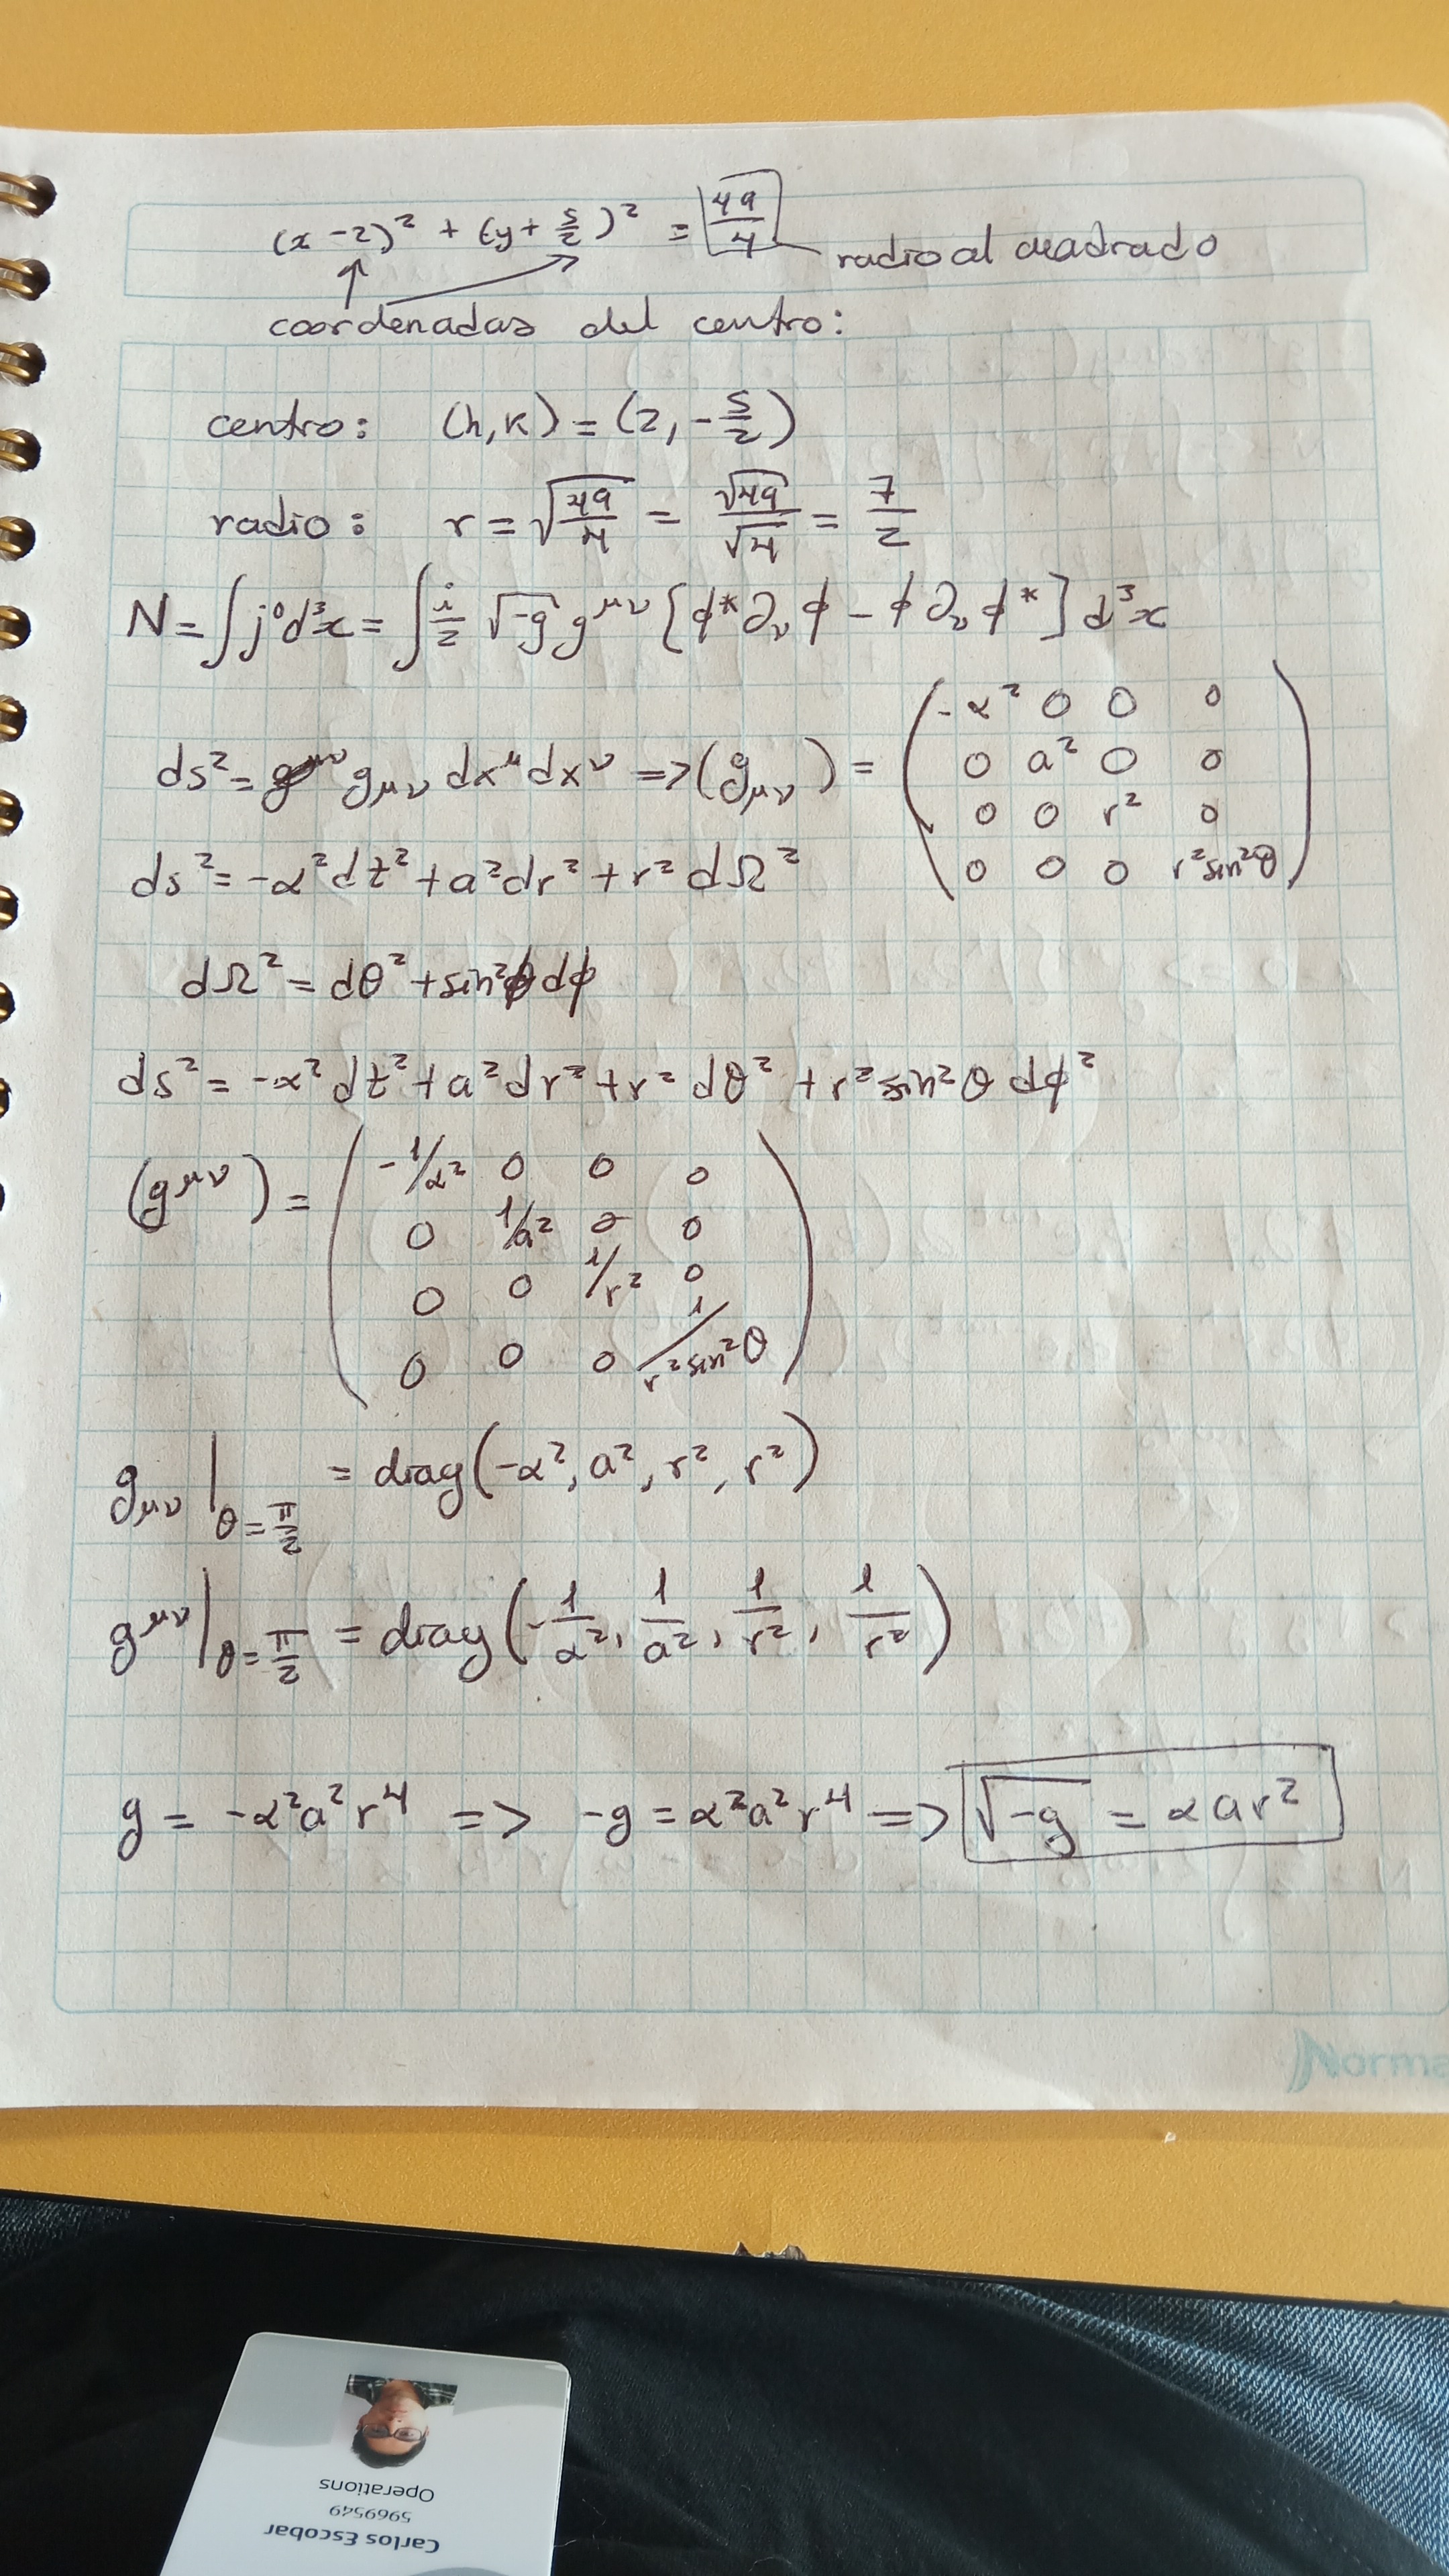 (x - 2)² + (y + 5/2)² = 49/4
radio al cuadrado
coordenadas del centro:
centro: (h, k) = (2, -5/2)
radio: r = √(49/4) = √49/√4 = 7/2
N = ∫ j⁰ d³x = ∫ i/2 √-g g^μν [ϕ* ∂_ν ϕ - ϕ ∂_ν ϕ*] d³x
ds² = g_μν dx^μ dx^ν => (g_μν) = ( -α² 0 0 0
0 a² 0 0
0 0 r² 0
0 0 0 r² sin²θ )
ds² = -α² dt² + a² dr² + r² dΩ²
dΩ² = dθ² + sin²θ dϕ
ds² = -α² dt² + a² dr² + r² dθ² + r² sin²θ dϕ²
(g^μν) = ( -1/α² 0 0 0
0 1/a² 0 0
0 0 1/r² 0
0 0 0 1/r² sin²θ )
g_μν |_θ=π/2 = diag(-α², a², r², r²)
g^μν |_θ=π/2 = diag(-1/α², 1/a², 1/r², 1/r²)
g = -α²a²r⁴ => -g = α²a²r⁴ => √-g = αar²
Norma
Carlos Escobar
5969549
Operations